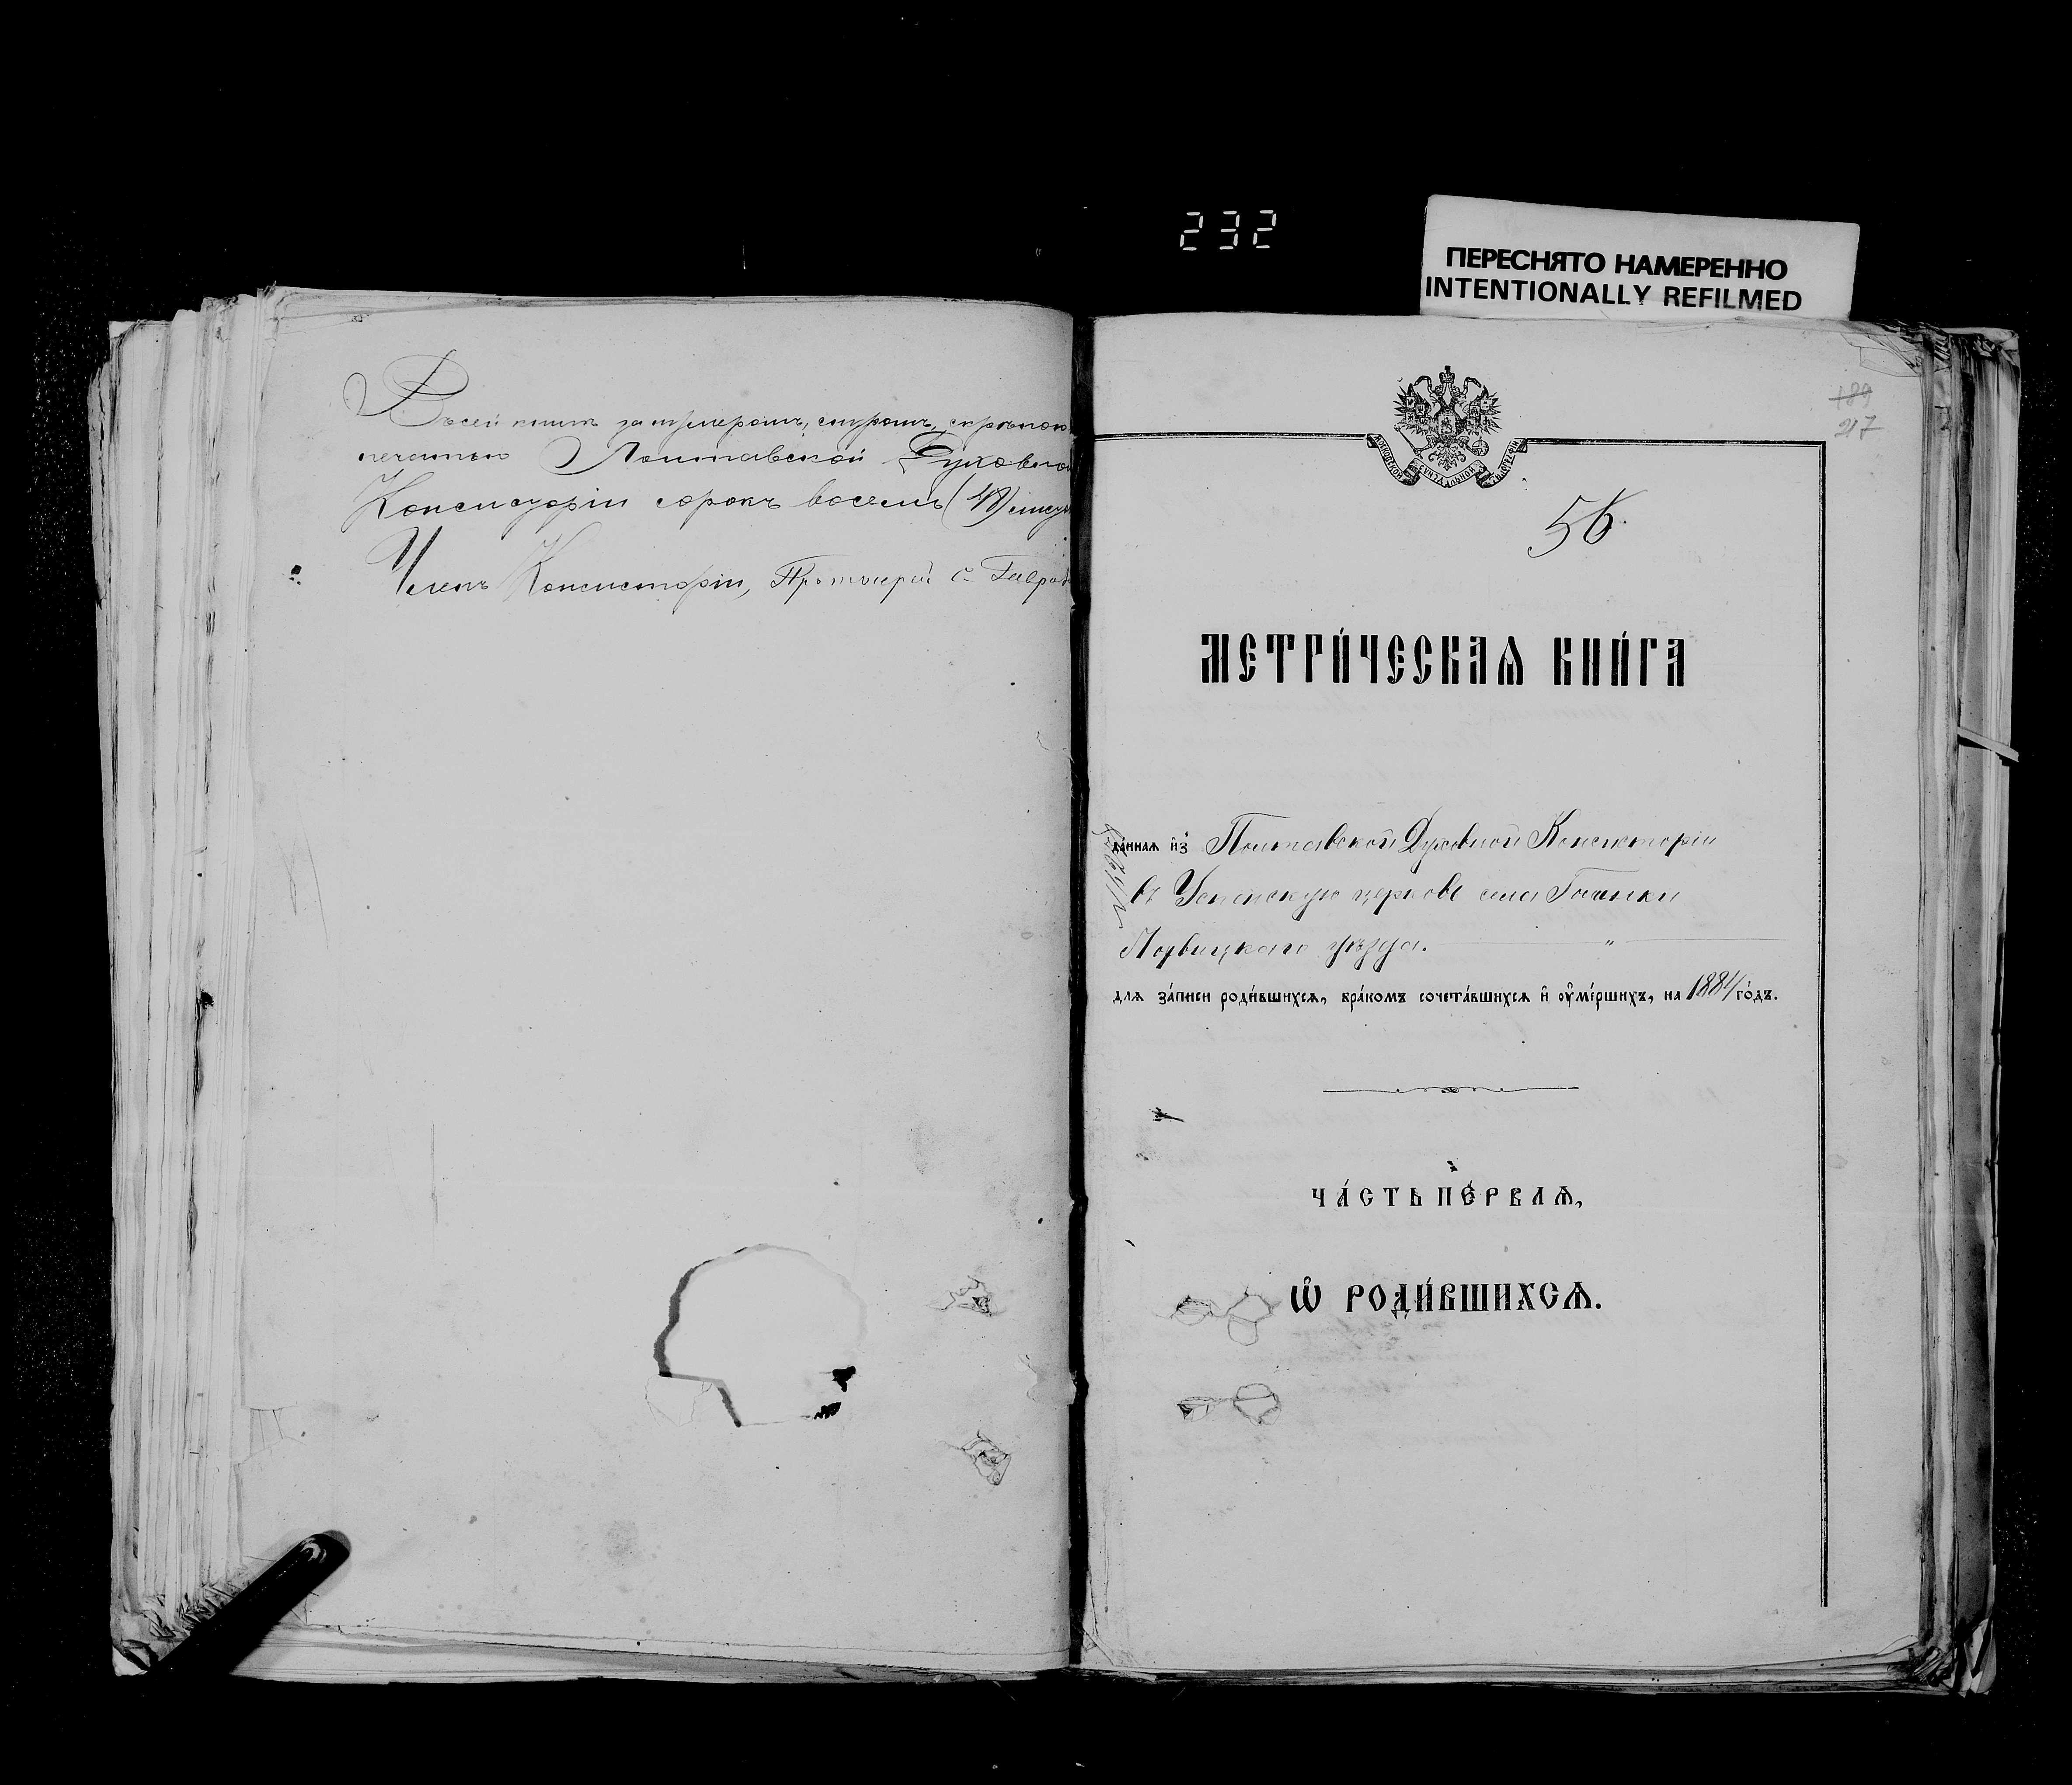 232
ПЕРЕСНЯТО НАМЕРЕННО
INTENTIONALLY REFILMED
Въ сей книгѣ за нумеромъ, шнуромъ, скрѣпою
печатью Полтавской Духовной
Консисторіи сорокъ восемь (48) листъ
Членъ Консисторіи, Протоіерей
189
217
МОСКОВСКОЙ СѶНОДАЛЬНОЙ ТѶПОГРАФІИ
56
МЕТРИ́ЧЕСКАѦ КНИ́ГА
да́ннаѧ и҆з̾ Полтавской Духовной Консисторіи
въ Успенскую церковь села
Лохвицкаго уѣзда. "
длѧ за́писи роди́вшихсѧ, бра́комъ сочета́вшихсѧ и҆ ᲂу҆ме́ршихъ, на 1884 го́дъ.
ЧА́СТЬ ПЕ́РВАѦ,
Ѡ҆ РОДИ́ВШИХСѦ.